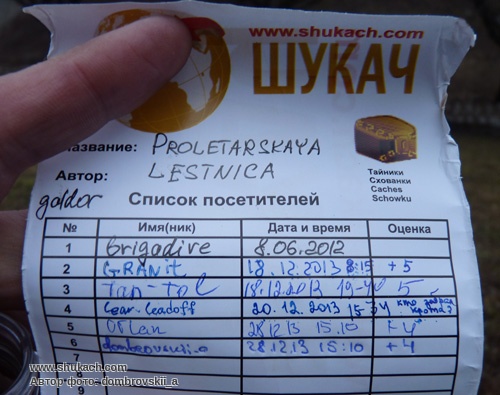 www.shukach.com
ШУКАЧ
Название: PROLETARSKAYA
LESTNICA
Автор:
galdor
Тайники
Схованки
Caches
Schowku
Список посетителей
№ Имя(ник) Дата и время Оценка
1 Brigadire 8.06.2012
2 GRANit 18.12.2013 8:15 +5
3 Tan-Tol 18.12.2013 19-40 5
4 Lear-Leadoff 20.12.2013 15-34 кто
5 Orlan 28.12.13 15.10 +4
6 dombrovskii.a 28.12.13 15:10 +4
7
8
9
www.shukach.com
Автор фото: dombrovskii_a